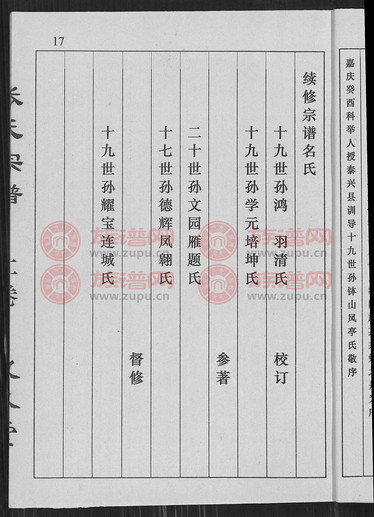 嘉庆癸酉科举人授泰兴县训导十九世孙钵山凤亭氏敬序
17
续修宗谱名氏
十九世孙鸿 羽清氏 校订
十九世孙学元培坤氏
参著
二十世孙文园雁题氏
十七世孙德辉凤翱氏
督修
十九世孙耀宝连城氏
族谱网
www.zupu.cn
族谱网
www.zupu.cn